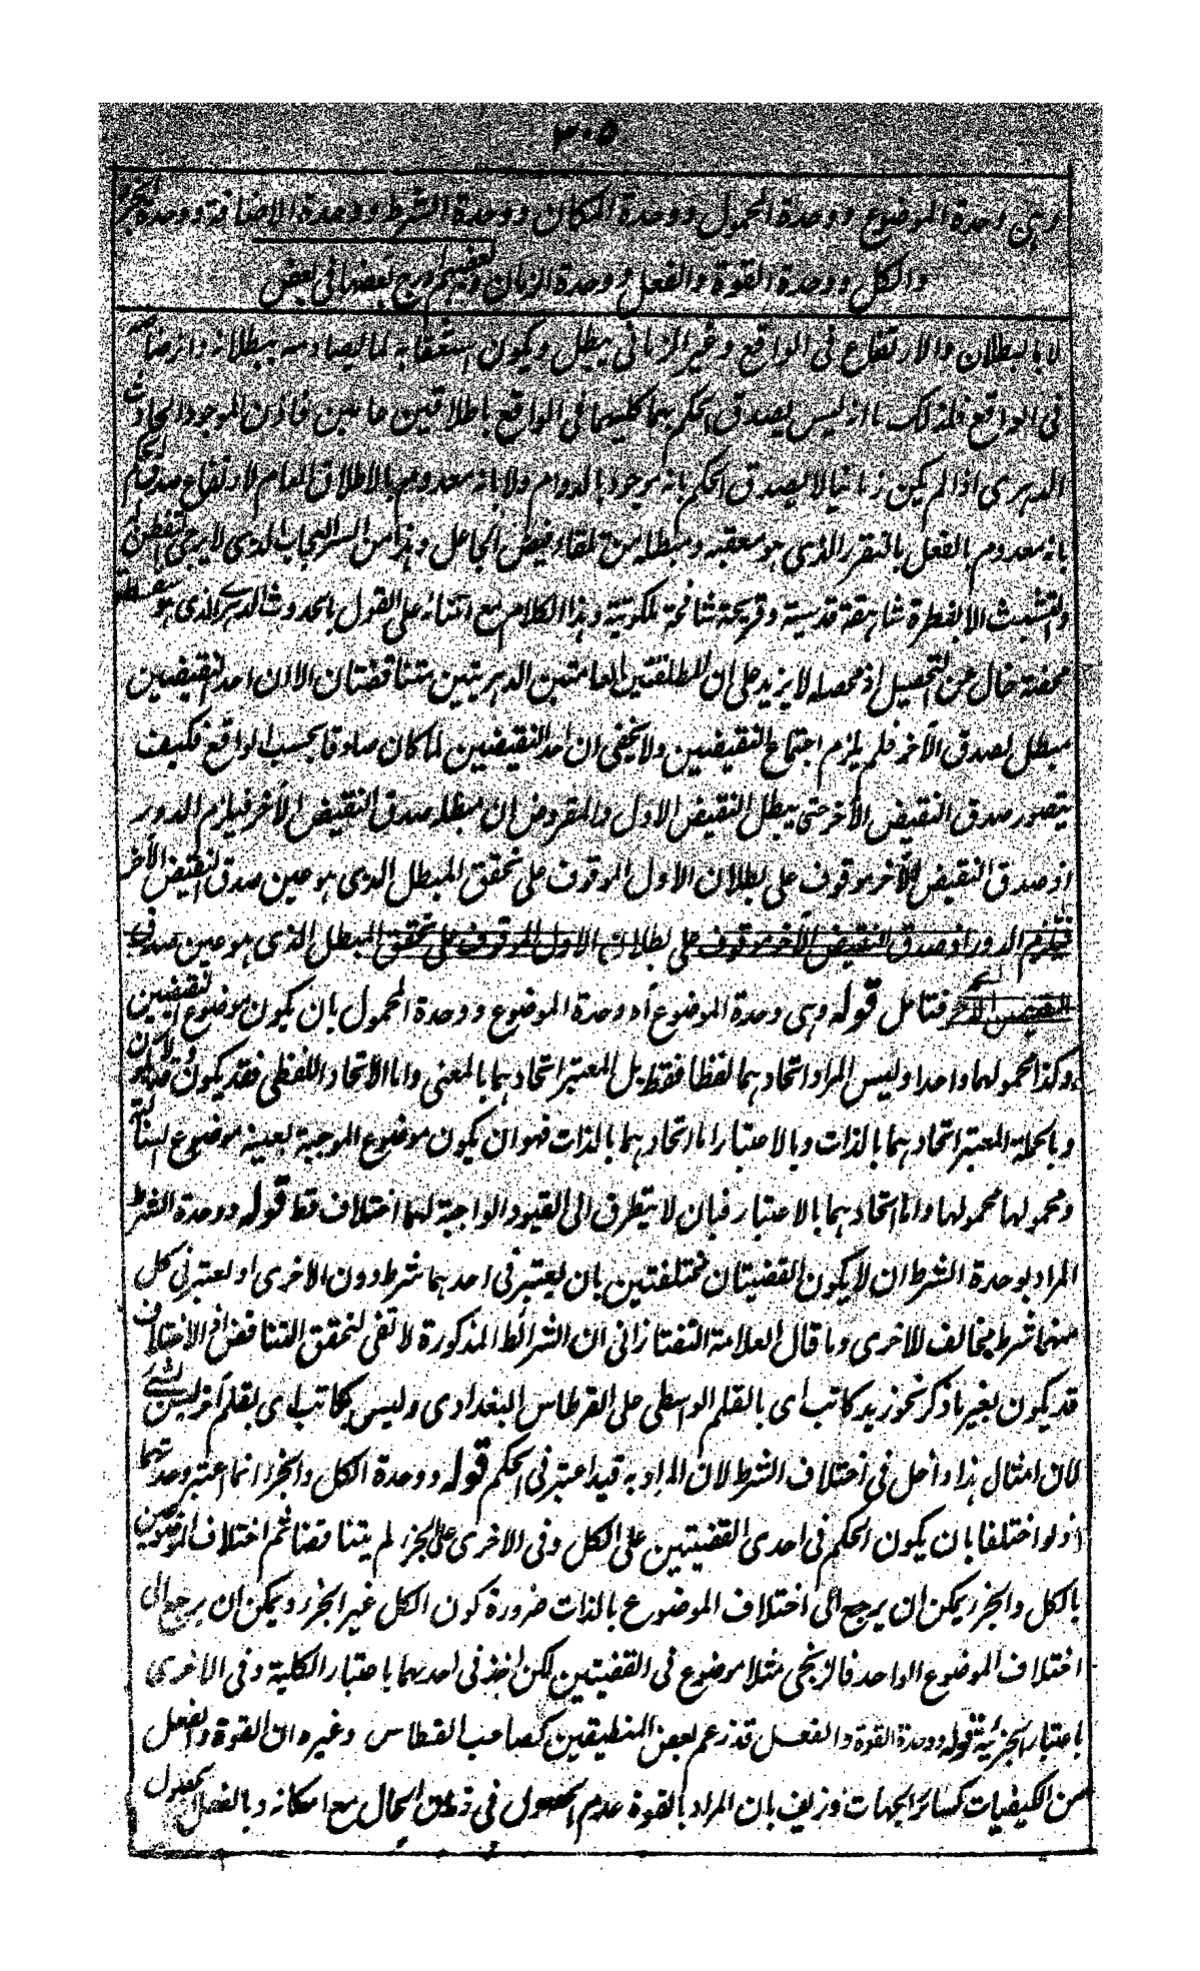 ٣٠٥
وهي وحدة الموضوع ووحدة المحمول ووحدة المكان ووحدة الشرط ووحدة الاضافة ووحدة الجزء
والكل ووحدة القوة والفعل ووحدة الزمان وبعضهم ادرج بعضها في بعض
لا بالبطلان والارتفاع في الواقع وغير الزماني يبطل ويكون استعقابه لما يصادمه ببطلانه وارتفاعه
في الواقع فلذلك ما اذ ليس يصدق الحكم بهما كليهما في الواقع باطلاقين عامين فاذن الموجود الحادث
الدهري اذا لم يكن زمانيا لا يصدق الحكم بانه موجود بالدوام ولا بانه معدوم بالاطلاق العام لارتفاع صدق الحكم
بانه معدوم بالفعل بالتقرر الذي هو معقبه ومبطله من تلقاء فيض الجاعل وهذا من السر العجاب الذي لا يرجى التفطن له
والتشبث الا بفطرة شاهقة قدسية وقريحة شامخة ملكوتية وهذا الكلام مع ابتنائه على القول بالحدوث الدهري الذي هو سفسطة
محضة خال عن التحصيل اذ محصله لا يزيد على ان المطلقتين العامتين الدهريتين متناقضتان الا ان احد النقيضين
مبطل لصدق الآخر فلم يلزم اجتماع النقيضين ولا يخفى ان احد النقيضين لما كان صادقا بحسب الواقع فكيف
يتصور صدق النقيض الآخر حتى يبطل النقيض الاول والمفروض ان مبطله صدق النقيض الآخر فيلزم الدور
اذ صدق النقيض الآخر موقوف على بطلان الاول الموقوف على تحقق المبطل الذي هو عين صدق النقيض الآخر
فيلزم الدور اذ صدق النقيض الآخر موقوف على بطلان الاول الموقوف على تحقق المبطل الذي هو عين صدق
النقيض الآخر فتامل قوله وهي وحدة الموضوع اه وحدة الموضوع ووحدة المحمول بان يكون موضوع النقيضين
وكذا محمولهما واحدا وليس المراد اتحادهما لفظا فقط بل المعتبر اتحادهما بالمعنى واما الاتحاد اللفظي فقد يكون وقد لا يكون
وبالجملة المعتبر اتحادهما بالذات وبالاعتبار اما اتحادهما بالذات فهو ان يكون موضوع الموجبة بعينه موضوع السالبة
ومحمولها محمولها واما اتحادهما بالاعتبار فبان لا يتطرق الى القيود الواجبة لهما اختلاف قط قوله ووحدة الشرط
المراد بوحدة الشرط ان لا يكون القضيتان مختلفتين بان يعتبر في احدهما شرط دون الاخرى او يعتبر في كل
منهما شرط يخالف للاخرى وما قال العلامة التفتازاني ان الشرائط المذكورة لا تفي لتحقق التناقض اذ الاختلاف
قد يكون بغير ما ذكر نحو زيد كاتب اى بالقلم الواسطى على القرطاس البغدادى وليس بكاتب اى بقلم آخر ليس بشئ
لان امثال هذا داخل في اختلاف الشرط لان المراد به قيد اعتبر في الحكم قوله ووحدة الكل والجزء انما اعتبر وحدتهما
اذ لو اختلفا بان يكون الحكم في احدى القضيتين على الكل وفي الاخرى على الجزء لم يتناقضا ثم اختلاف الموضوعين
بالكل والجزء يمكن ان يرجع الى اختلاف الموضوع بالذات ضرورة كون الكل غير الجزء ويمكن ان يرجع الى
اختلاف الموضوع الواحد فالزنجى مثلا موضوع في القضيتين لكن اخذ في احدهما باعتبار الكلية وفي الاخرى
باعتبار الجزئية قوله ووحدة القوة والفعل قد زعم بعض المنطقيين كصاحب القسطاس وغيره ان القوة والفعل
من الكيفيات كسائر الجهات وزيف بان المراد بالقوة عدم الحصول في ذلك الحال مع امكانه وبالفعل الحصول